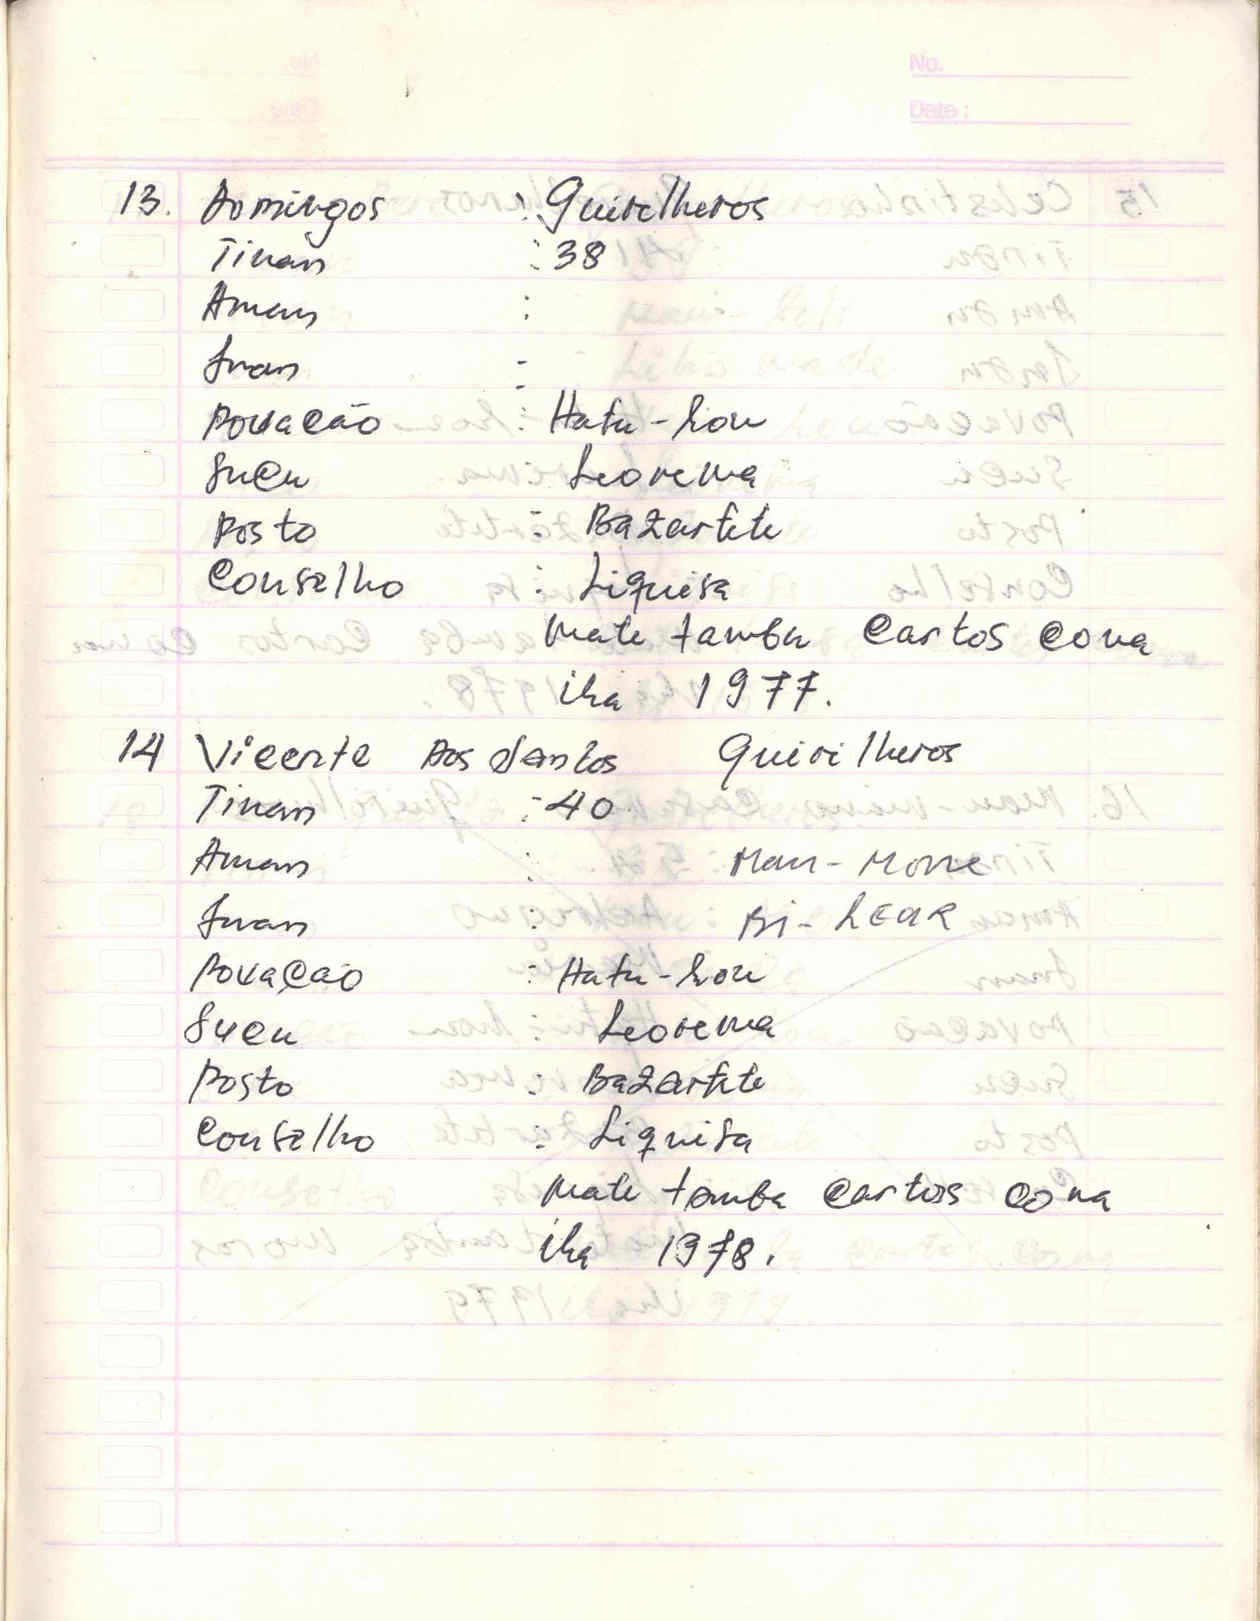 No.
Date:
13. Domingos : Guirelheros
Tinan : 38
Aman :
Inan :
Povação : Hatu-hou
Sucu Leorema
Posto : Bazartete
Conselho : Liquisa
Mate tamba Cartos cona
iha 1977.
14 Vicente Dos Santos Guirilheros
Tinan : 40
Aman : Mau-Mone
Inan : Bi-LEAR
Povação : Hatu-hou
Sucu Leorema
Posto : Bazartete
Conselho : Liquisa
Mate tamba Cartos cona
iha 1978.